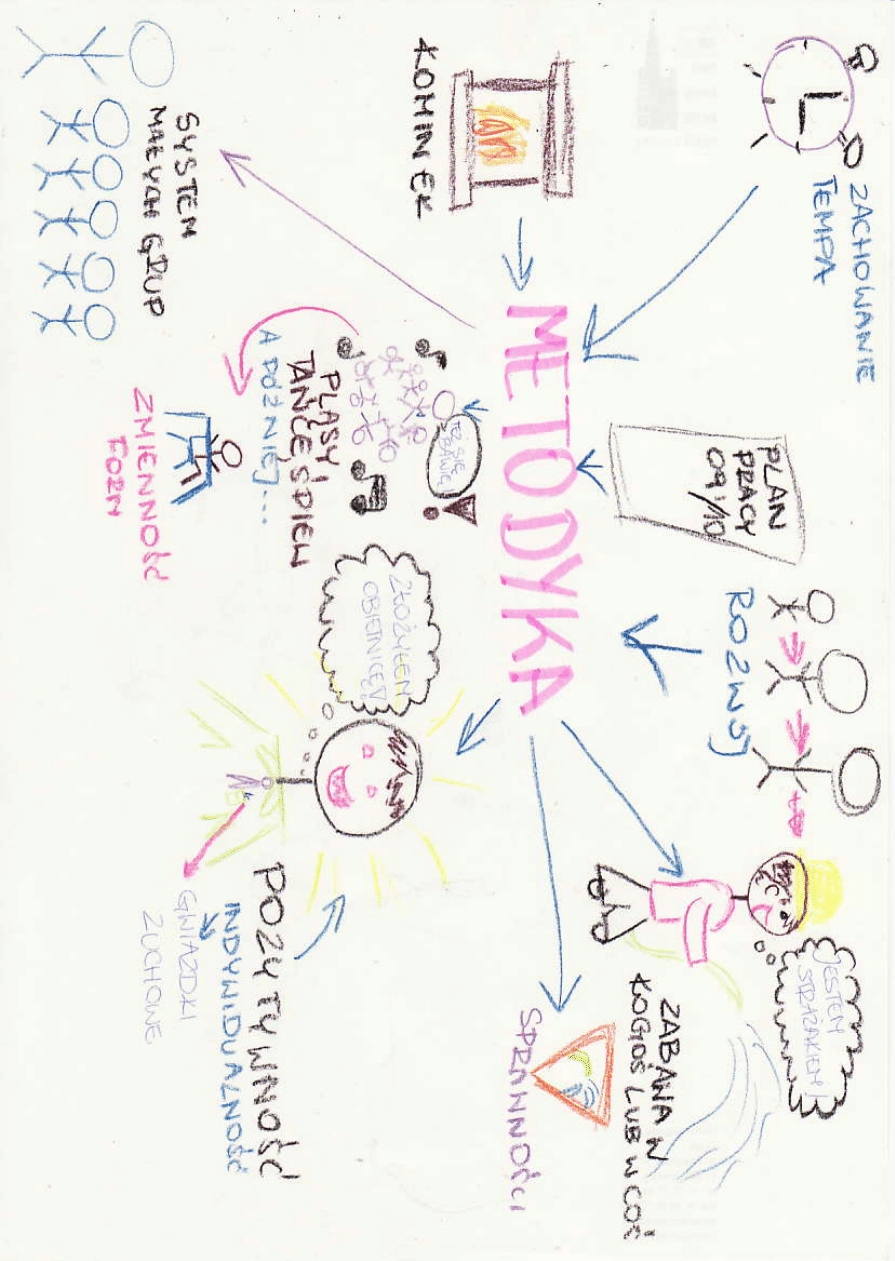 ZACHOWANIE
TEMPA
KOMINEK
SYSTEM
MAŁYCH GRUP
METODYKA
PLAN
PRACY
09'/10
ROZWÓJ
TEŻ SIĘ
BAWIĘ
PLĄSY I
TAŃCE, ŚPIEW
A PÓŹNIEJ...
ZMIENNOŚĆ
FORM
ZŁOŻYŁEM
OBIETNICĘ!
POZYTYWNOŚĆ
INDYWIDUALNOŚĆ
GWIAZDKI
ZUCHOWE
JESTEM
STRAŻAKIEM!
ZABAWA W
KOGOŚ LUB W COŚ
SPRAWNOŚCI